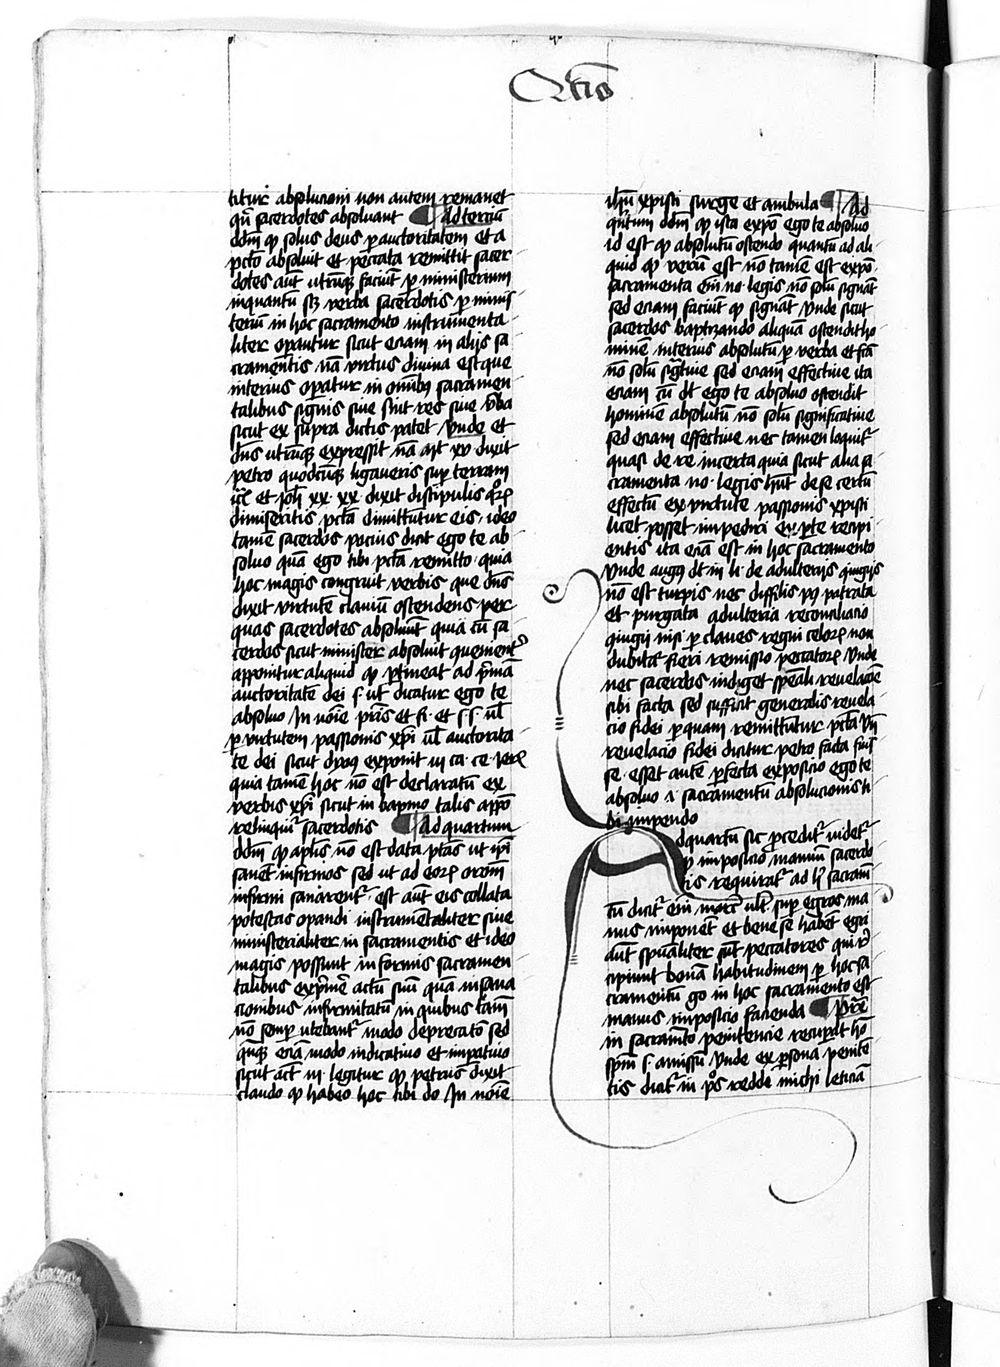 Qstio
titur absolucioni non autem remanet
qn̄ sacerdotes absoluant Ad terciū
dōm qꝫ solus deus per auctoritatem et a
pctō absoluit et peccata remittit sacer
dotes aut̄ utrūqꝫ faciūt per ministerium
inquantū scꝫ verba sacerdotis per minis
teriū in hoc sacramento instrumenta
liter opantur sicut eciam in alijs sa
cramentis nā virtus diuina est que
interius opatur in omībꝫ sacramen
talibus signis siue sint res siue vba
sicut ex supra dictis patet Vnde et
dn̄s utrūqꝫ expressit nā mt̄ xvi dixit
petro quodcūqꝫ ligaueris sup terram
et Joh̄ xx dixit discipulis qͦꝝ
dimiseritis pctā dimittūtur eis ideo
tamē sacerdos pocius dicit ego te ab
soluo quā ego tibi pctā remitto quia
hoc magis congruit verbis que dn̄s
dixit virtutē clauiū ostendens per
quas sacerdotes absoluūt quia cū sa
cerdos sicut minister absoluit
apponitur aliquid qꝫ ptineat ad primā
auctoritatē dei s ut dicatur ego te
absoluo In noīe pris et fi et s s ul̄
per virtutem passionis xpi ul̄ auctorita
te dei sicut dyoꝰ exponit
quia tamē hoc nō est declaratū ex
verbis xpi sicut in baptmo talis appō
relinquit sacerdotis Ad quartum
dōm qꝫ apl̄is nō est data ptās ut ipi
sanēt infirmos sed ut ad eoꝝ orōm
infirmi sanarent est aut̄ eis collata
potestas opandi instrumētaliter siue
ministerialiter in sacramentis et ideo
magis possunt in formis sacramen
talibus exprimē actū suū quā in sana
cionibus infirmitatū in quibus tam̄
nō semp utebant modo deprecatō sed
qn̄qꝫ eciā modo indicatiuo et impatiuo
sicut act iii legitur qꝫ petrus dixit
claudo qꝫ habeo hoc tibi do In noīe
ih̄u xpisti surge et ambula Ad
qn̄tum dōm qꝫ ista expō ego te absoluo
id est qꝫ absolutū ostendo quantū ad ali
quid qꝫ verū est nō tamē est expō
sacramenta em̄ no legis nō solū signāt
sed eciam faciūt qꝫ signāt Vnde sicut
sacerdos baptizando aliquā ostendit ho
minē interius absolutū per verba et fc̄a
nō solū sigtiue sed eciam effectiue ita
eciam cū dt ego te absoluo ostendit
hominē absolutū nō solū significatiue
sed eciam effectiue nec tamen loquit
quasi de re incerta quia sicut alia sa
cramenta no legis hn̄t de se certū
effectū ex virtute passionis xpisti
licet posset impediri ex pte recipi
entis ita eciā est in hoc sacramento
Vnde augꝰ dt in li de adulterijs giugijs
nō est turpis nec difficilis pꝰ patrata
et purgata adulteria reconciliacio
giugij nisi per claues regni celoꝝ non
dubitat fieri remissio peccatoꝝ Vnde
nec sacerdos indiget speāli reuelacōe
sibi facta sed sufficit generalis reuela
cio fidei per quam remittūtur pctā
reuelacio fidei dicitur petro facta fuis
se esset autē pfecta exposicio ego te
absoluo i sacramentū absolucionis ti
bi impendo
Ad quartū sic pcedit videt
qꝫ imposicio manuū sacerdo
tis requirat ad hꝰ sacram̄
tū dicit em̄ marc ult sup egros ma
nus imponēt et bene se habēt egri
aut̄ spūaliter sūt peccatores qui re
cipiunt bonā habitudinem per hoc sa
cramentū go in hoc sacramento est
manus imposicio facienda Pre
in sacramto penitencie recupat hō
spm̄ s amissū Vnde ex psona penitē
tis dicit in pͦs redde michi leticiā